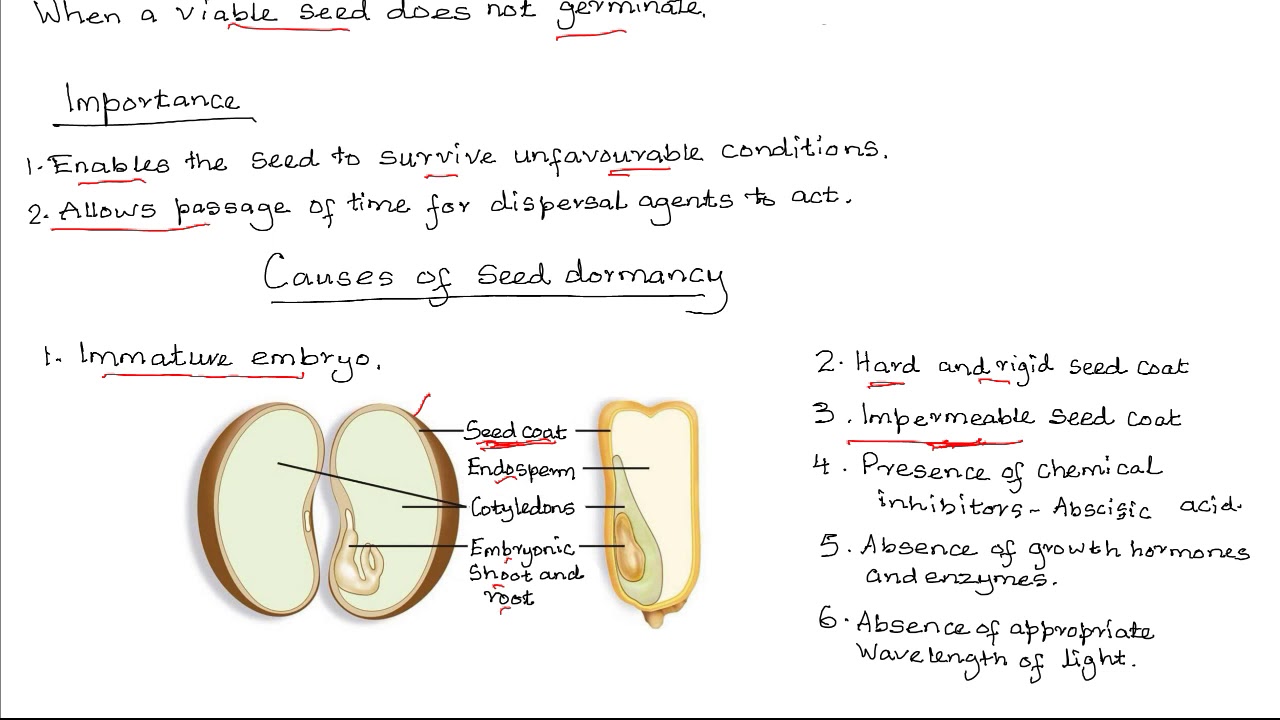 When a viable seed does not germinate.
Importance
1. Enables the seed to survive unfavourable conditions.
2. Allows passage of time for dispersal agents to act.
Causes of seed dormancy
1. Immature embryo.
Seed coat
Endosperm
Cotyledons
Embryonic
Shoot and
root
2. Hard and rigid seed coat
3. Impermeable seed coat
4. Presence of chemical
inhibitors - Abscisic acid.
5. Absence of growth hormones
and enzymes.
6. Absence of appropriate
wavelength of light.